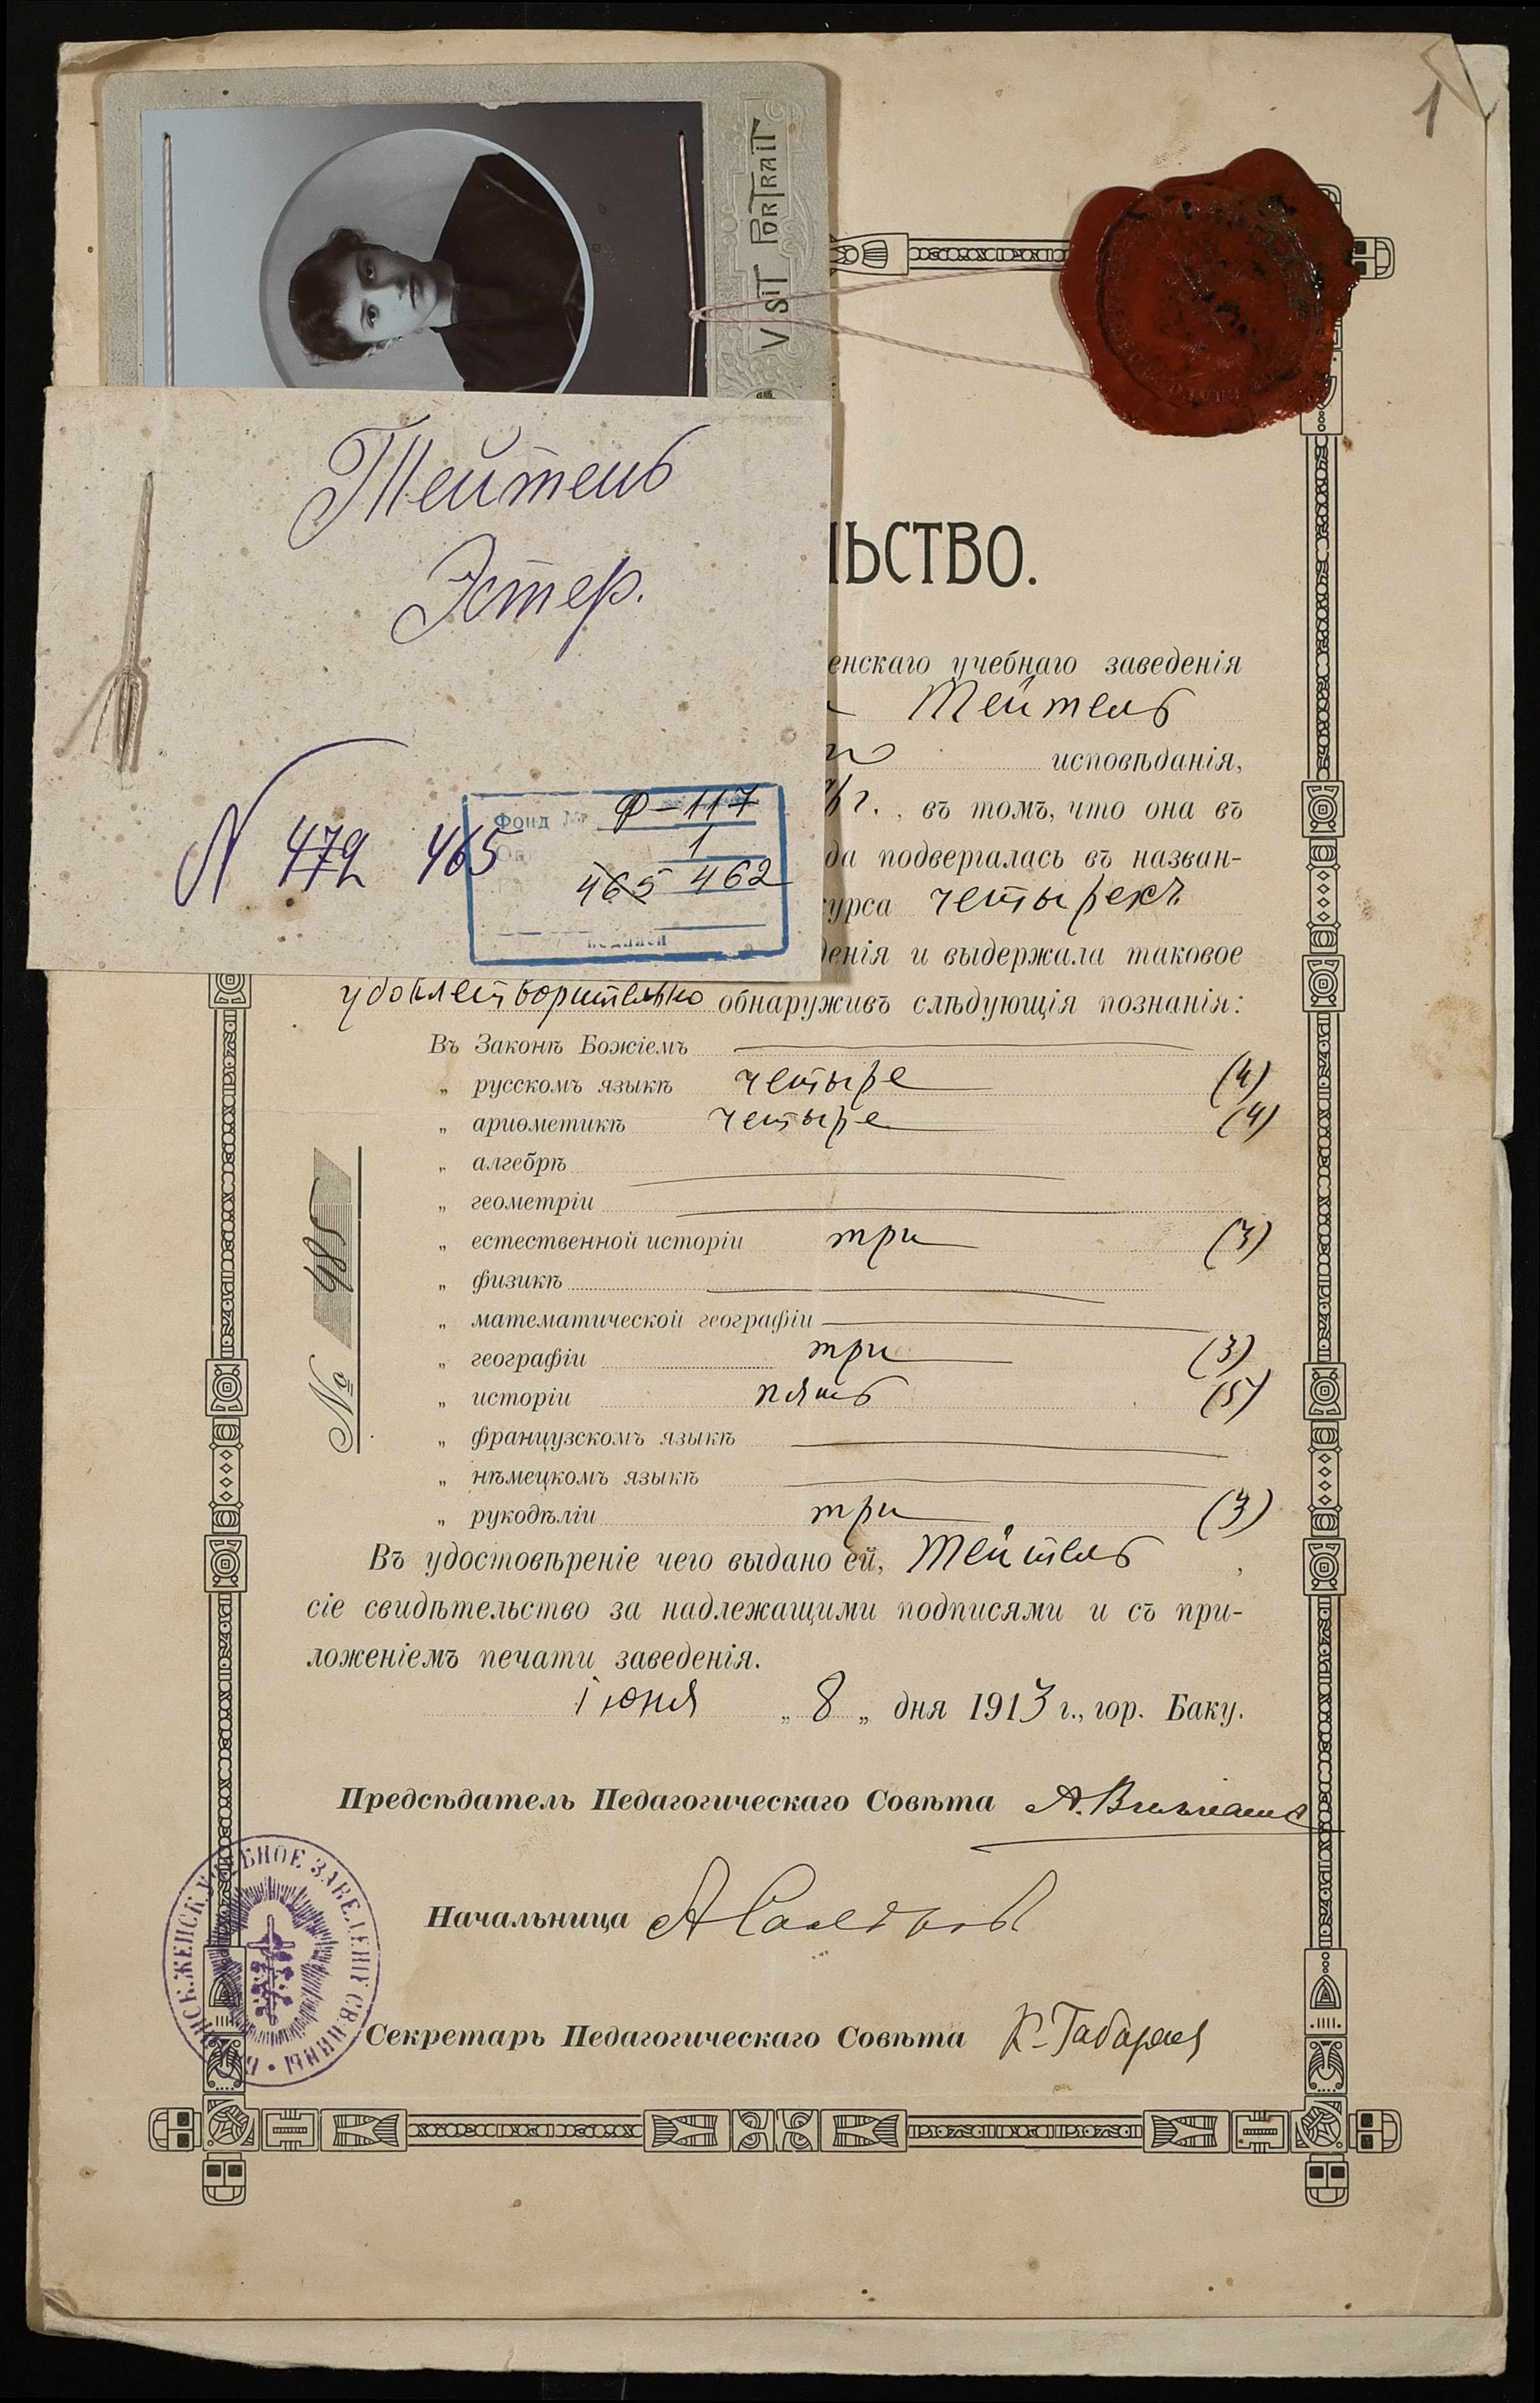 1
VISIT PORTRAIT
Тейтель
Эстер.
N 472 465
Фонд № Ф-117
1
465 462
ЛЬСТВО.
енскаго учебнаго заведенія
Тейтель
исповѣданія,
г., въ томъ, что она въ
да подвергалась въ назван-
урса четырехъ
денія и выдержала таковое
удовлетворительно обнаруживъ слѣдующія познанія:
Въ Законѣ Божіемъ
„ русскомъ языкѣ четыре (4)
„ ариѳметикѣ четыре (4)
„ алгебрѣ
„ геометріи
„ естественной исторіи три (3)
„ физикѣ
„ математической географіи
„ географіи три (3)
„ исторіи пять (5)
„ французскомъ языкѣ
„ нѣмецкомъ языкѣ
„ рукодѣліи три (3)
№ 985
Въ удостовѣреніе чего выдано ей, Тейтель,
сіе свидѣтельство за надлежащими подписями и съ при-
ложеніемъ печати заведенія.
іюня „ 8 „ дня 1913 г., гор. Баку.
Предсѣдатель Педагогическаго Совѣта
Начальница
Секретарь Педагогическаго Совѣта
ЖЕНСК. УЧЕБНОЕ ЗАВЕДЕНІЕ СВ. НИНЫ